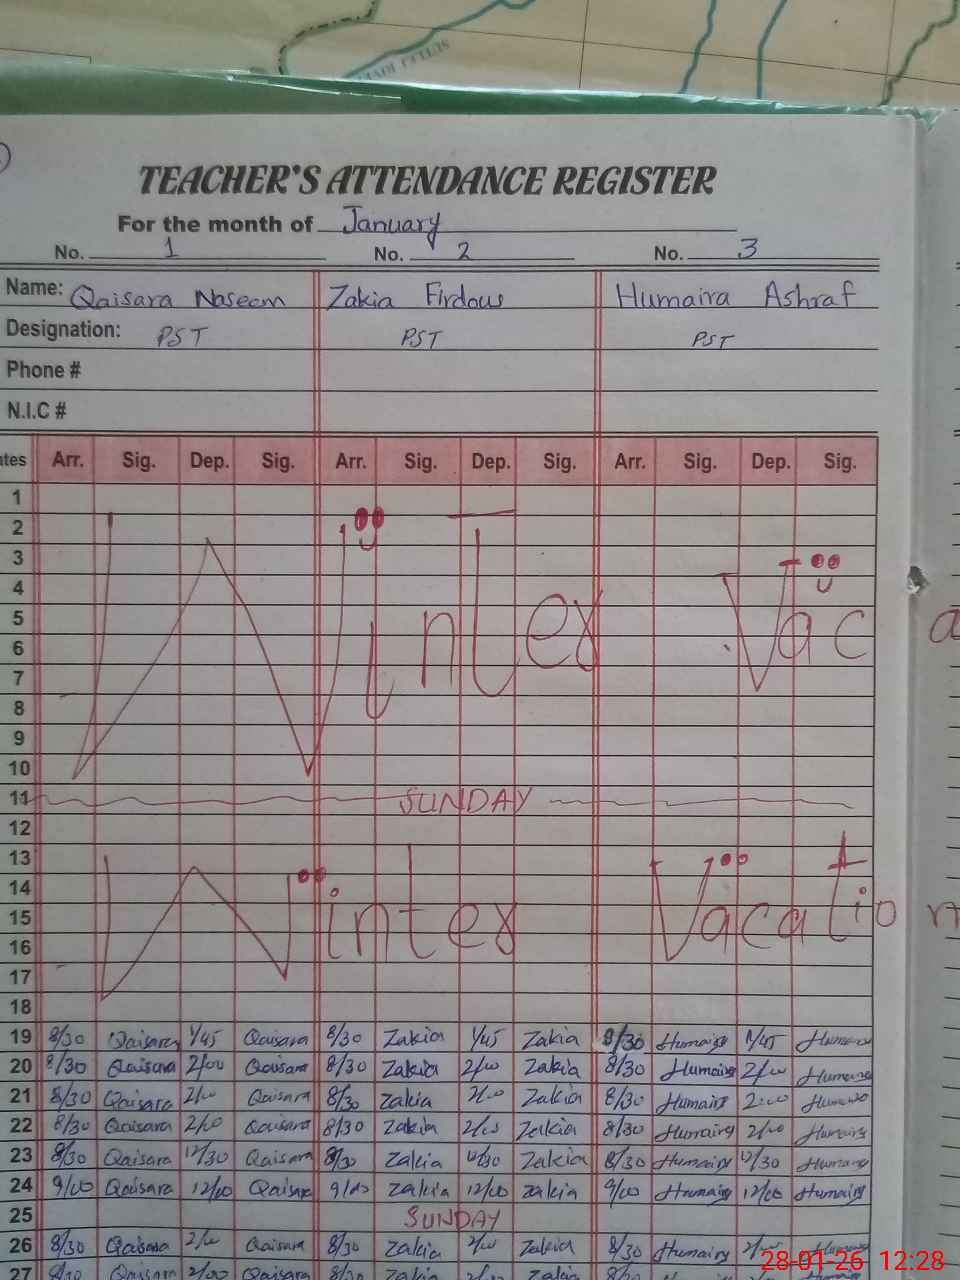 TEACHER'S ATTENDANCE REGISTER
For the month of January
No. 1 No. 2 No. 3
Name: Qaisara Naseem Zakia Firdous Humaira Ashraf
Designation: PST PST PST
Phone #
N.I.C #
Arr. Sig. Dep. Sig. Arr. Sig. Dep. Sig. Arr. Sig. Dep. Sig.
1
2
3
4
5
6
Winter Vaca
7
8
9
10
11 SUNDAY
12
13
14
15
Winter Vacation
16
17
18
19 8/30 Qaisara 1/45 Qaisara 8/30 Zakia 1/45 Zakia 8/30 Humaira 1/45 Humaira
20 8/30 Qaisara 2/00 Qaisara 8/30 Zakia 2/00 Zakia 8/30 Humaira 2/00 Humaira
21 8/30 Qaisara 2/00 Qaisara 8/30 Zakia 2/00 Zakia 8/30 Humaira 2:00 Humaira
22 8/30 Qaisara 2/00 Qaisara 8/30 Zakia 2/00 Zakia 8/30 Humaira 2/00 Humaira
23 8/30 Qaisara 12/30 Qaisara 8/30 Zakia 12/30 Zakia 8/30 Humaira 12/30 Humaira
24 9/00 Qaisara 12/00 Qaisara 9/00 Zakia 12/00 Zakia 9/00 Humaira 12/00 Humaira
25 SUNDAY
26 8/30 Qaisara 2/00 Qaisara 8/30 Zakia 2/00 Zakia 8/30 Humaira
27 8/30 Qaisara 2/00 Qaisara 8/30 Zakia
28-01-26 12:28